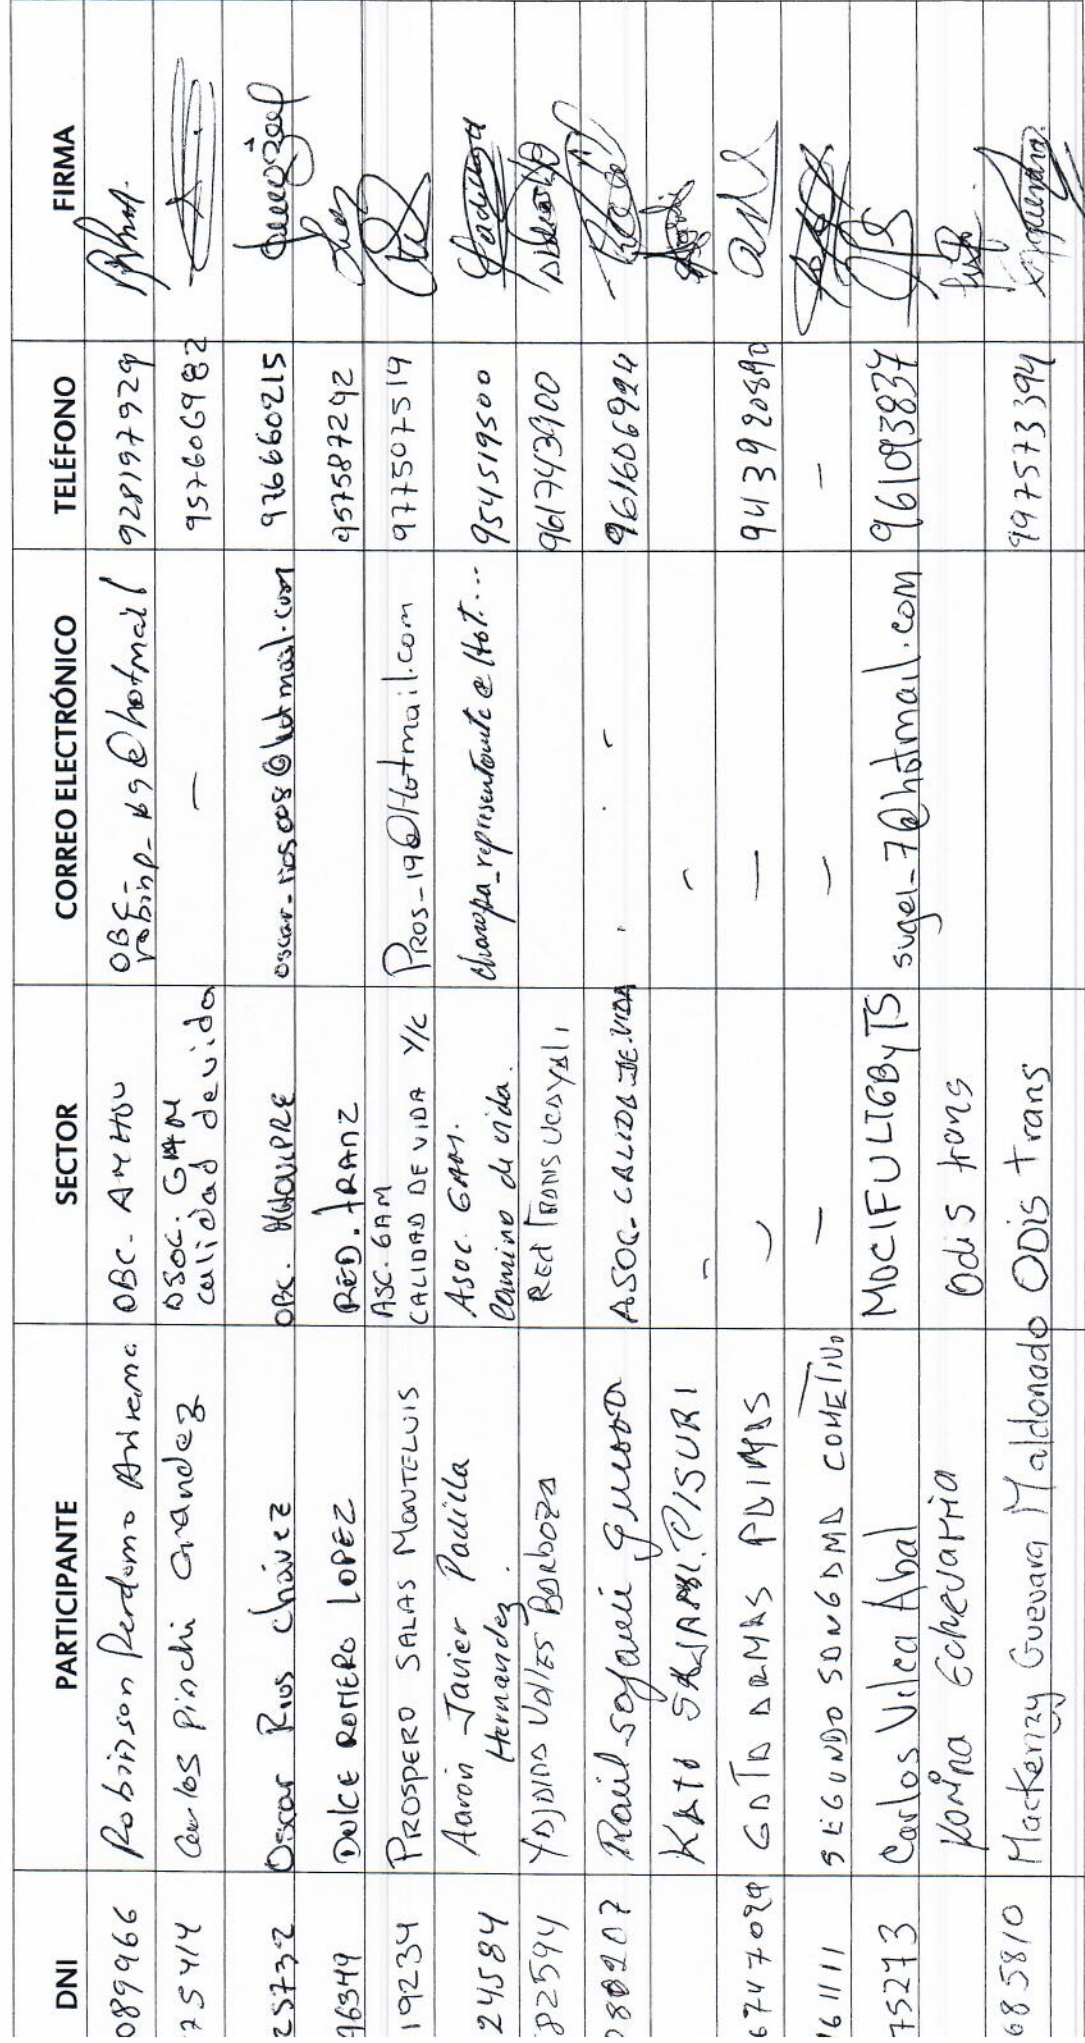 DNI PARTICIPANTE SECTOR CORREO ELECTRÓNICO TELÉFONO FIRMA
089966 Robinson Perdomo OBC- robinp_ @hotmail 928197929
75414 Carlos Pinchi Grandez calidad de vida — 957606982
25732 Oscar Rios Chávez OBC. oscar_rios008@hotmail.com 976660215
96349 DULCE ROMERO LOPEZ RED. TRANZ 957587242
19234 PROSPERO SALAS MONTELUIS ASC. GAM
CALIDAD DE VIDA Y/C Pros_19@Hotmail.com 977507519
24584 Aaron Javier Padilla
Hernandez. ASOC. GAM.
Camino de vida. charapa_representante@Hot.... 954519500
82594 VALLES BARBOZA RED TRANS UCAYALI 961743900
Raúl ASOC. CALIDA-DE-VIDA - 961606924
KATO -
GATA ARMAS — 941392089
61111 SEGUNDO SANGAMA COMETIVO — — —
75273 Carlos Vilca Abal MDCIFULTGByTS sugel_7@hotmail.com 961093837
Echevarria Odis trans
685810 Mackenzy Guevara Maldonado ODis Trans 997573394